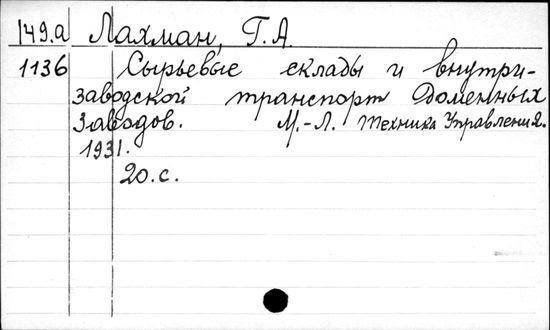 149.а Лахман, Г. А.
1136 Сырьевые склады и внутри-
заводской транспорт Доменных
Заводов. М.-Л. Техника Управления.
1931.
20.с.